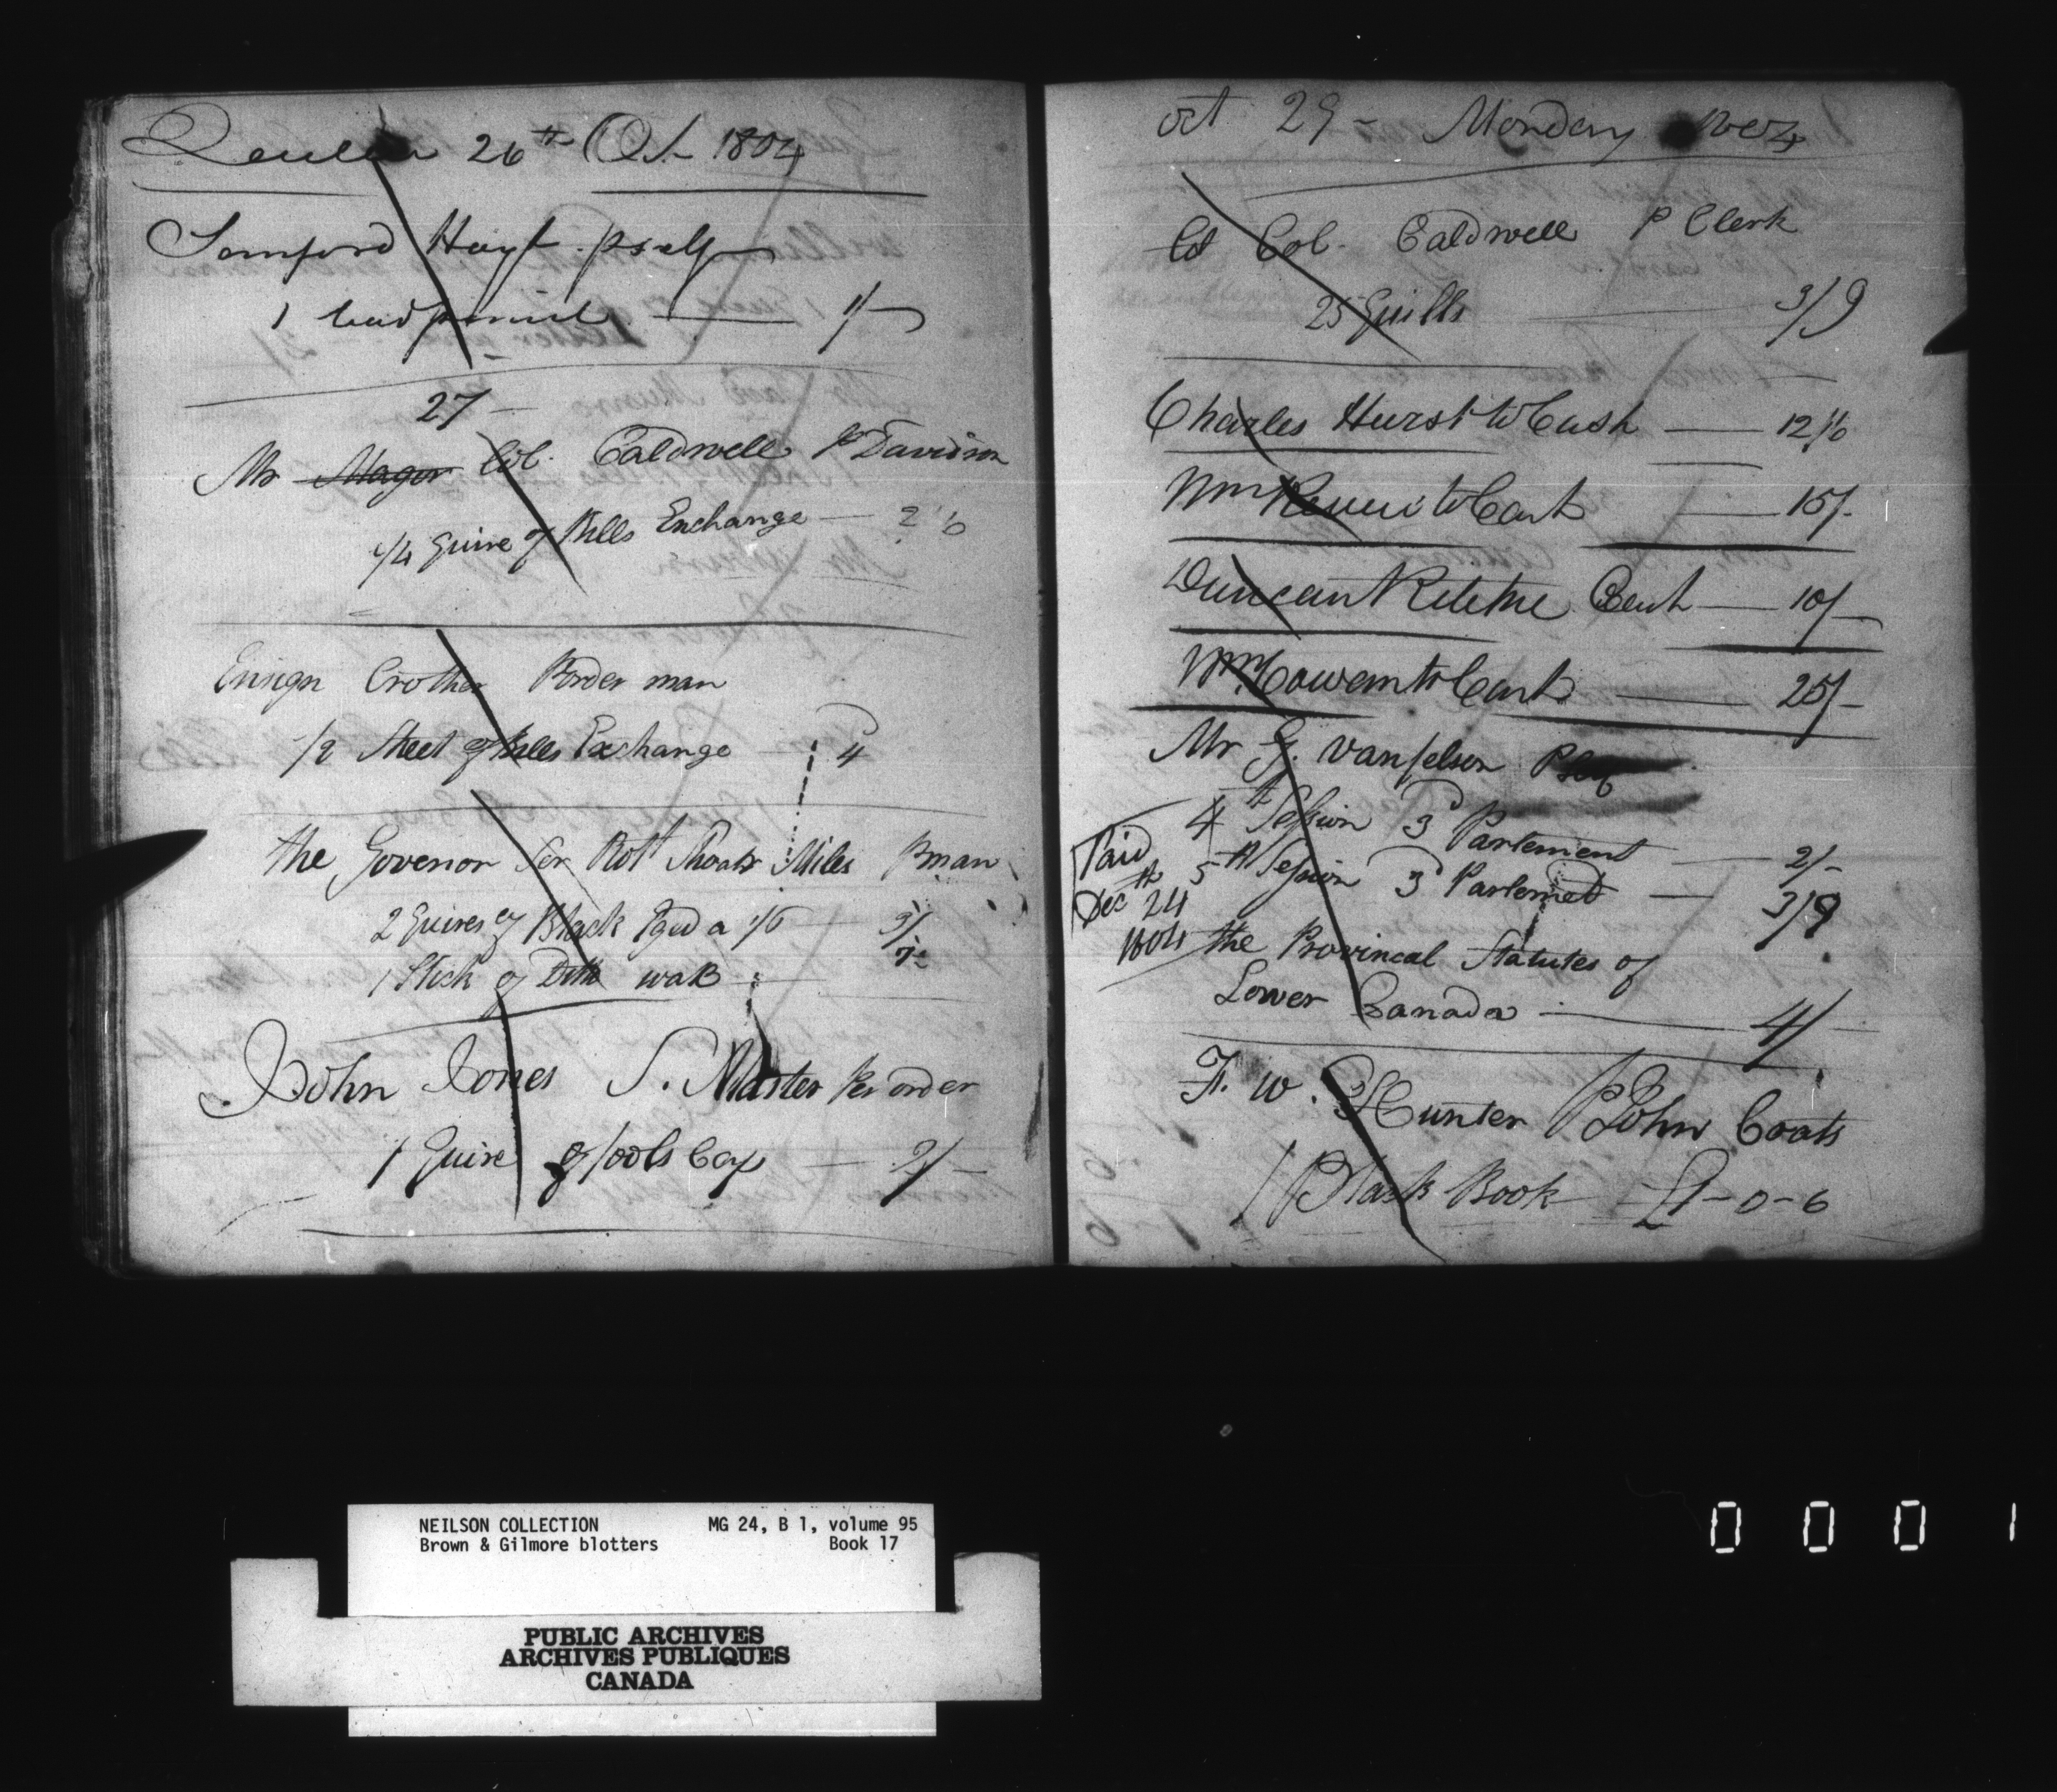 Quebec 26th Oct 1804
Samford Hoyt pself
1 lead pencil 1/
27
Mr Mager Col. Caldwell P Davidson
1/4 Quire of Bills Exchange 2"6
Ensign Crother Border man
1/2 Sheet of Bills Exchange 4
the Govenor Sir Robt Shoatr Miles Bman
2 Quires of Black Eged a 1/6 3/
1 Stick of Ditto wax 7
John Jones S. Master Per order
1 Quire of fools Cap 2/
oct 29 - Monday 1804
Lt Col. Caldwell P Clerk
25 Quills 3/9
Charles Hurst to Cash 12/6
Wm to Cash 15/-
Duncan Ritchie Cash 10/-
Wm Cowan to Cash 25/-
Mr G. Vanfelson Pself
4th Session 3d Parlement 2/-
5th Session 3d Parlemet 3/9
Paid
Dec 24th
1804
the Provincal Statutes of
Lower Canada 4/
F. W. Hunter P John Coats
1 Blank Book £1-0-6
NEILSON COLLECTION MG 24, B 1, volume 95
Brown & Gilmore blotters Book 17
PUBLIC ARCHIVES
ARCHIVES PUBLIQUES
CANADA
0 0 0 1